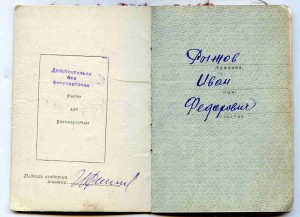 Действительна
без
фотокарточки
Место
для
фотокарточки
Подпись владельца
книжки
Рыжов
фамилия
Иван
имя
Федорович
отчество